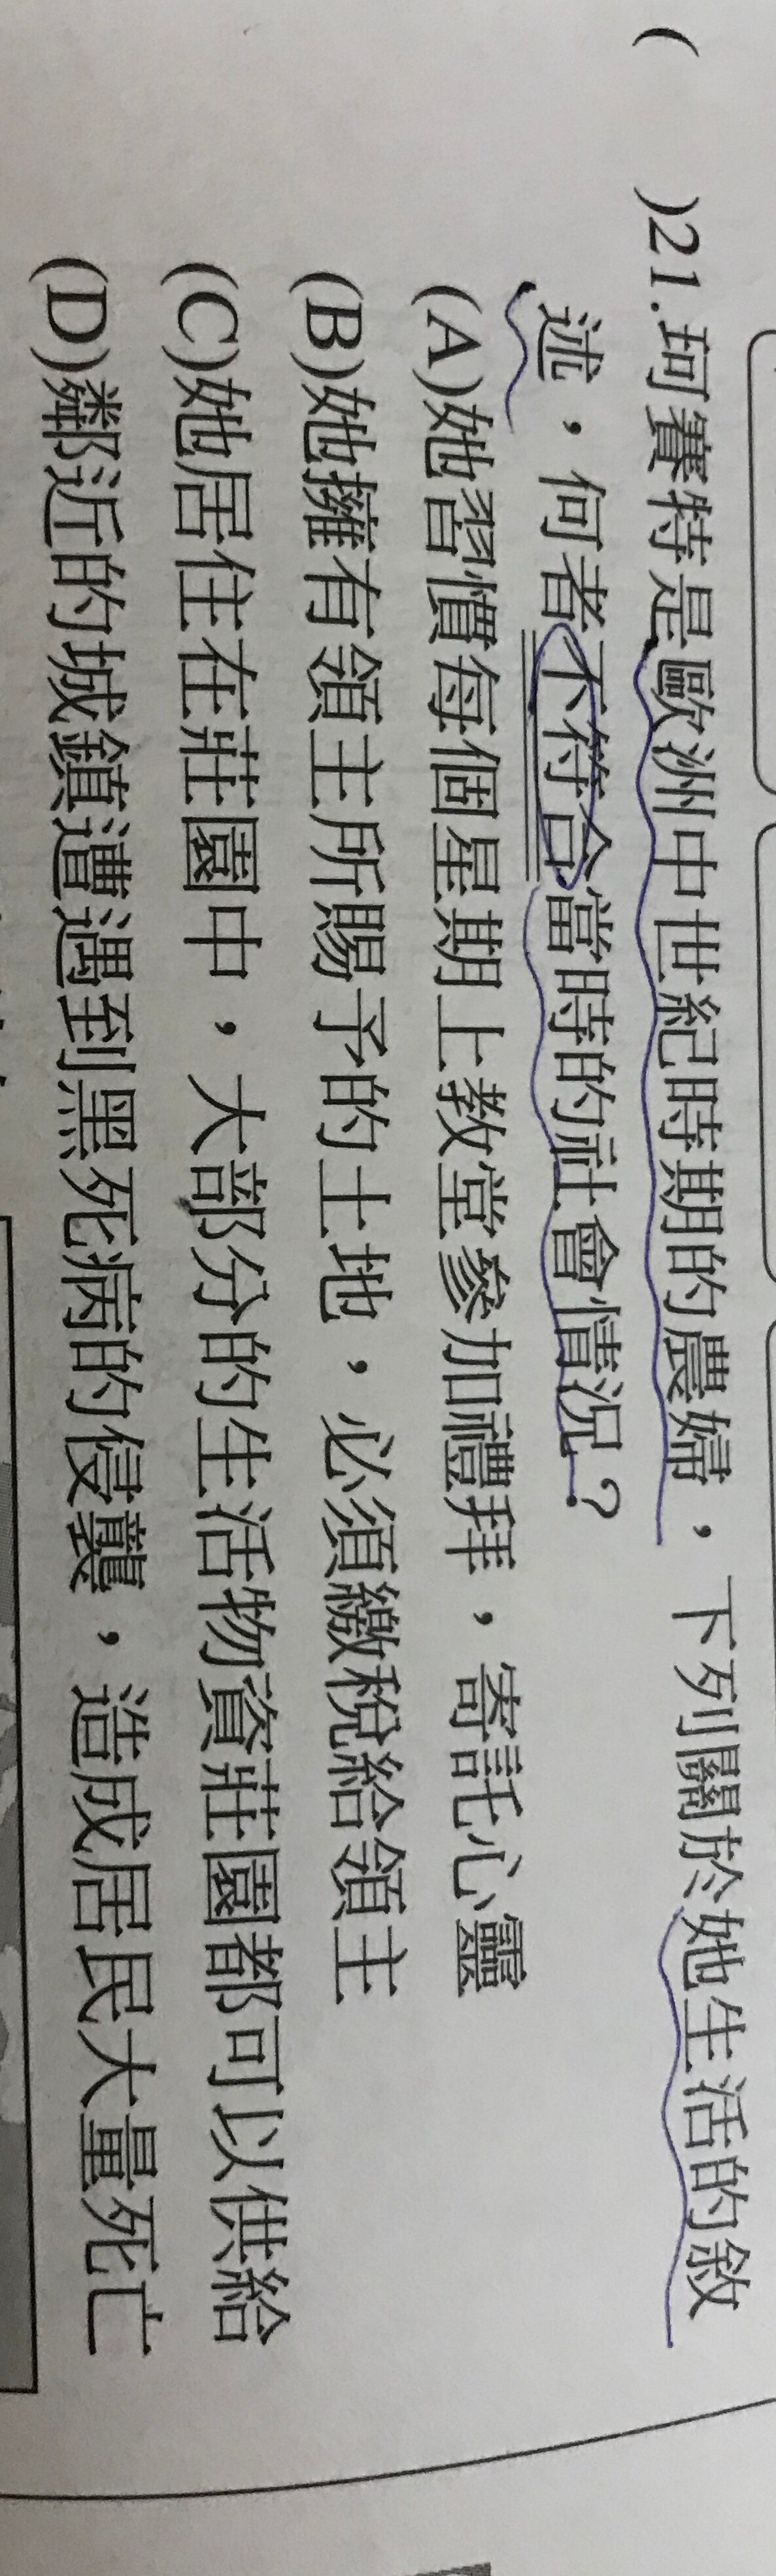 (　　)21.珂賽特是歐洲中世紀時期的農婦，下列關於她生活的敘
述，何者不符合當時的社會情況？
(A)她習慣每個星期上教堂參加禮拜，寄託心靈
(B)她擁有領主所賜予的土地，必須繳稅給領主
(C)她居住在莊園中，大部分的生活物資莊園都可以供給
(D)鄰近的城鎮遭遇到黑死病的侵襲，造成居民大量死亡